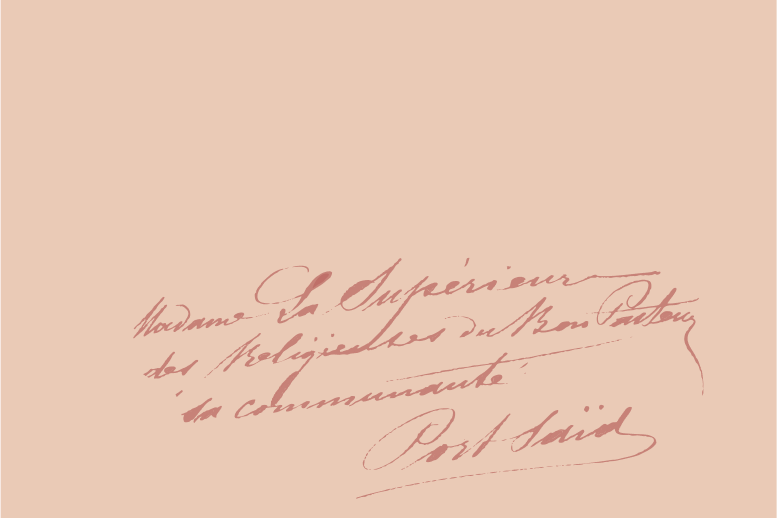 Madame La Supérieure
des Religieuses du Bon Pasteur
Sa communauté
Port Saïd